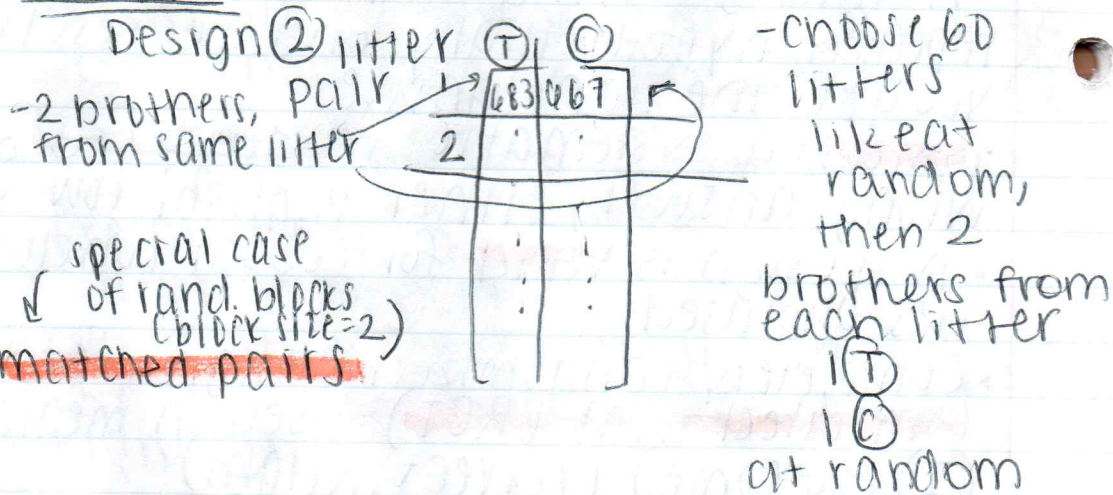 Design ② litter Ⓣ Ⓒ
pair 1 683 667
2
-2 brothers,
from same litter
special case
of rand. blocks
(block size=2)
matched pairs
-choose 60
litters
like at
random,
then 2
brothers from
each litter
1 Ⓣ
1 Ⓒ
at random